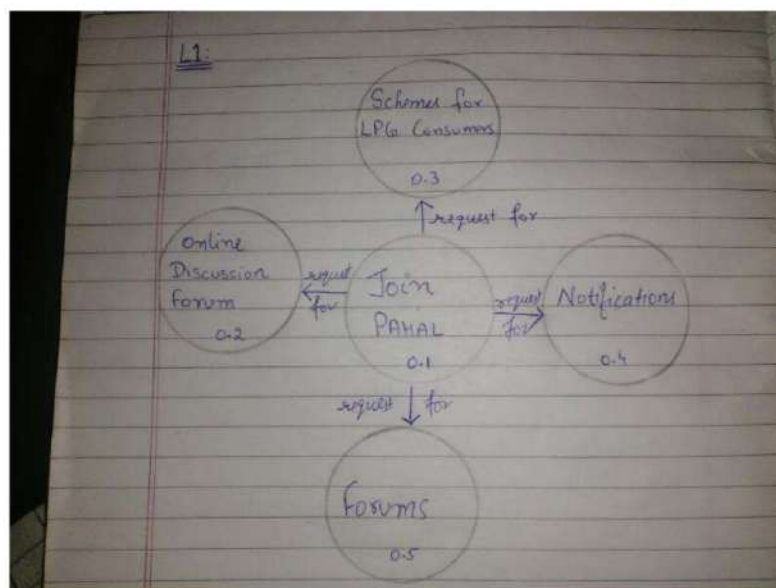 L1:
Schemes for
LPG Consumers
0.3
request for
Online
Discussion
Forum
0.2
request
for
Join
PAHAL
0.1
request
for
Notifications
0.4
request for
Forums
0.5